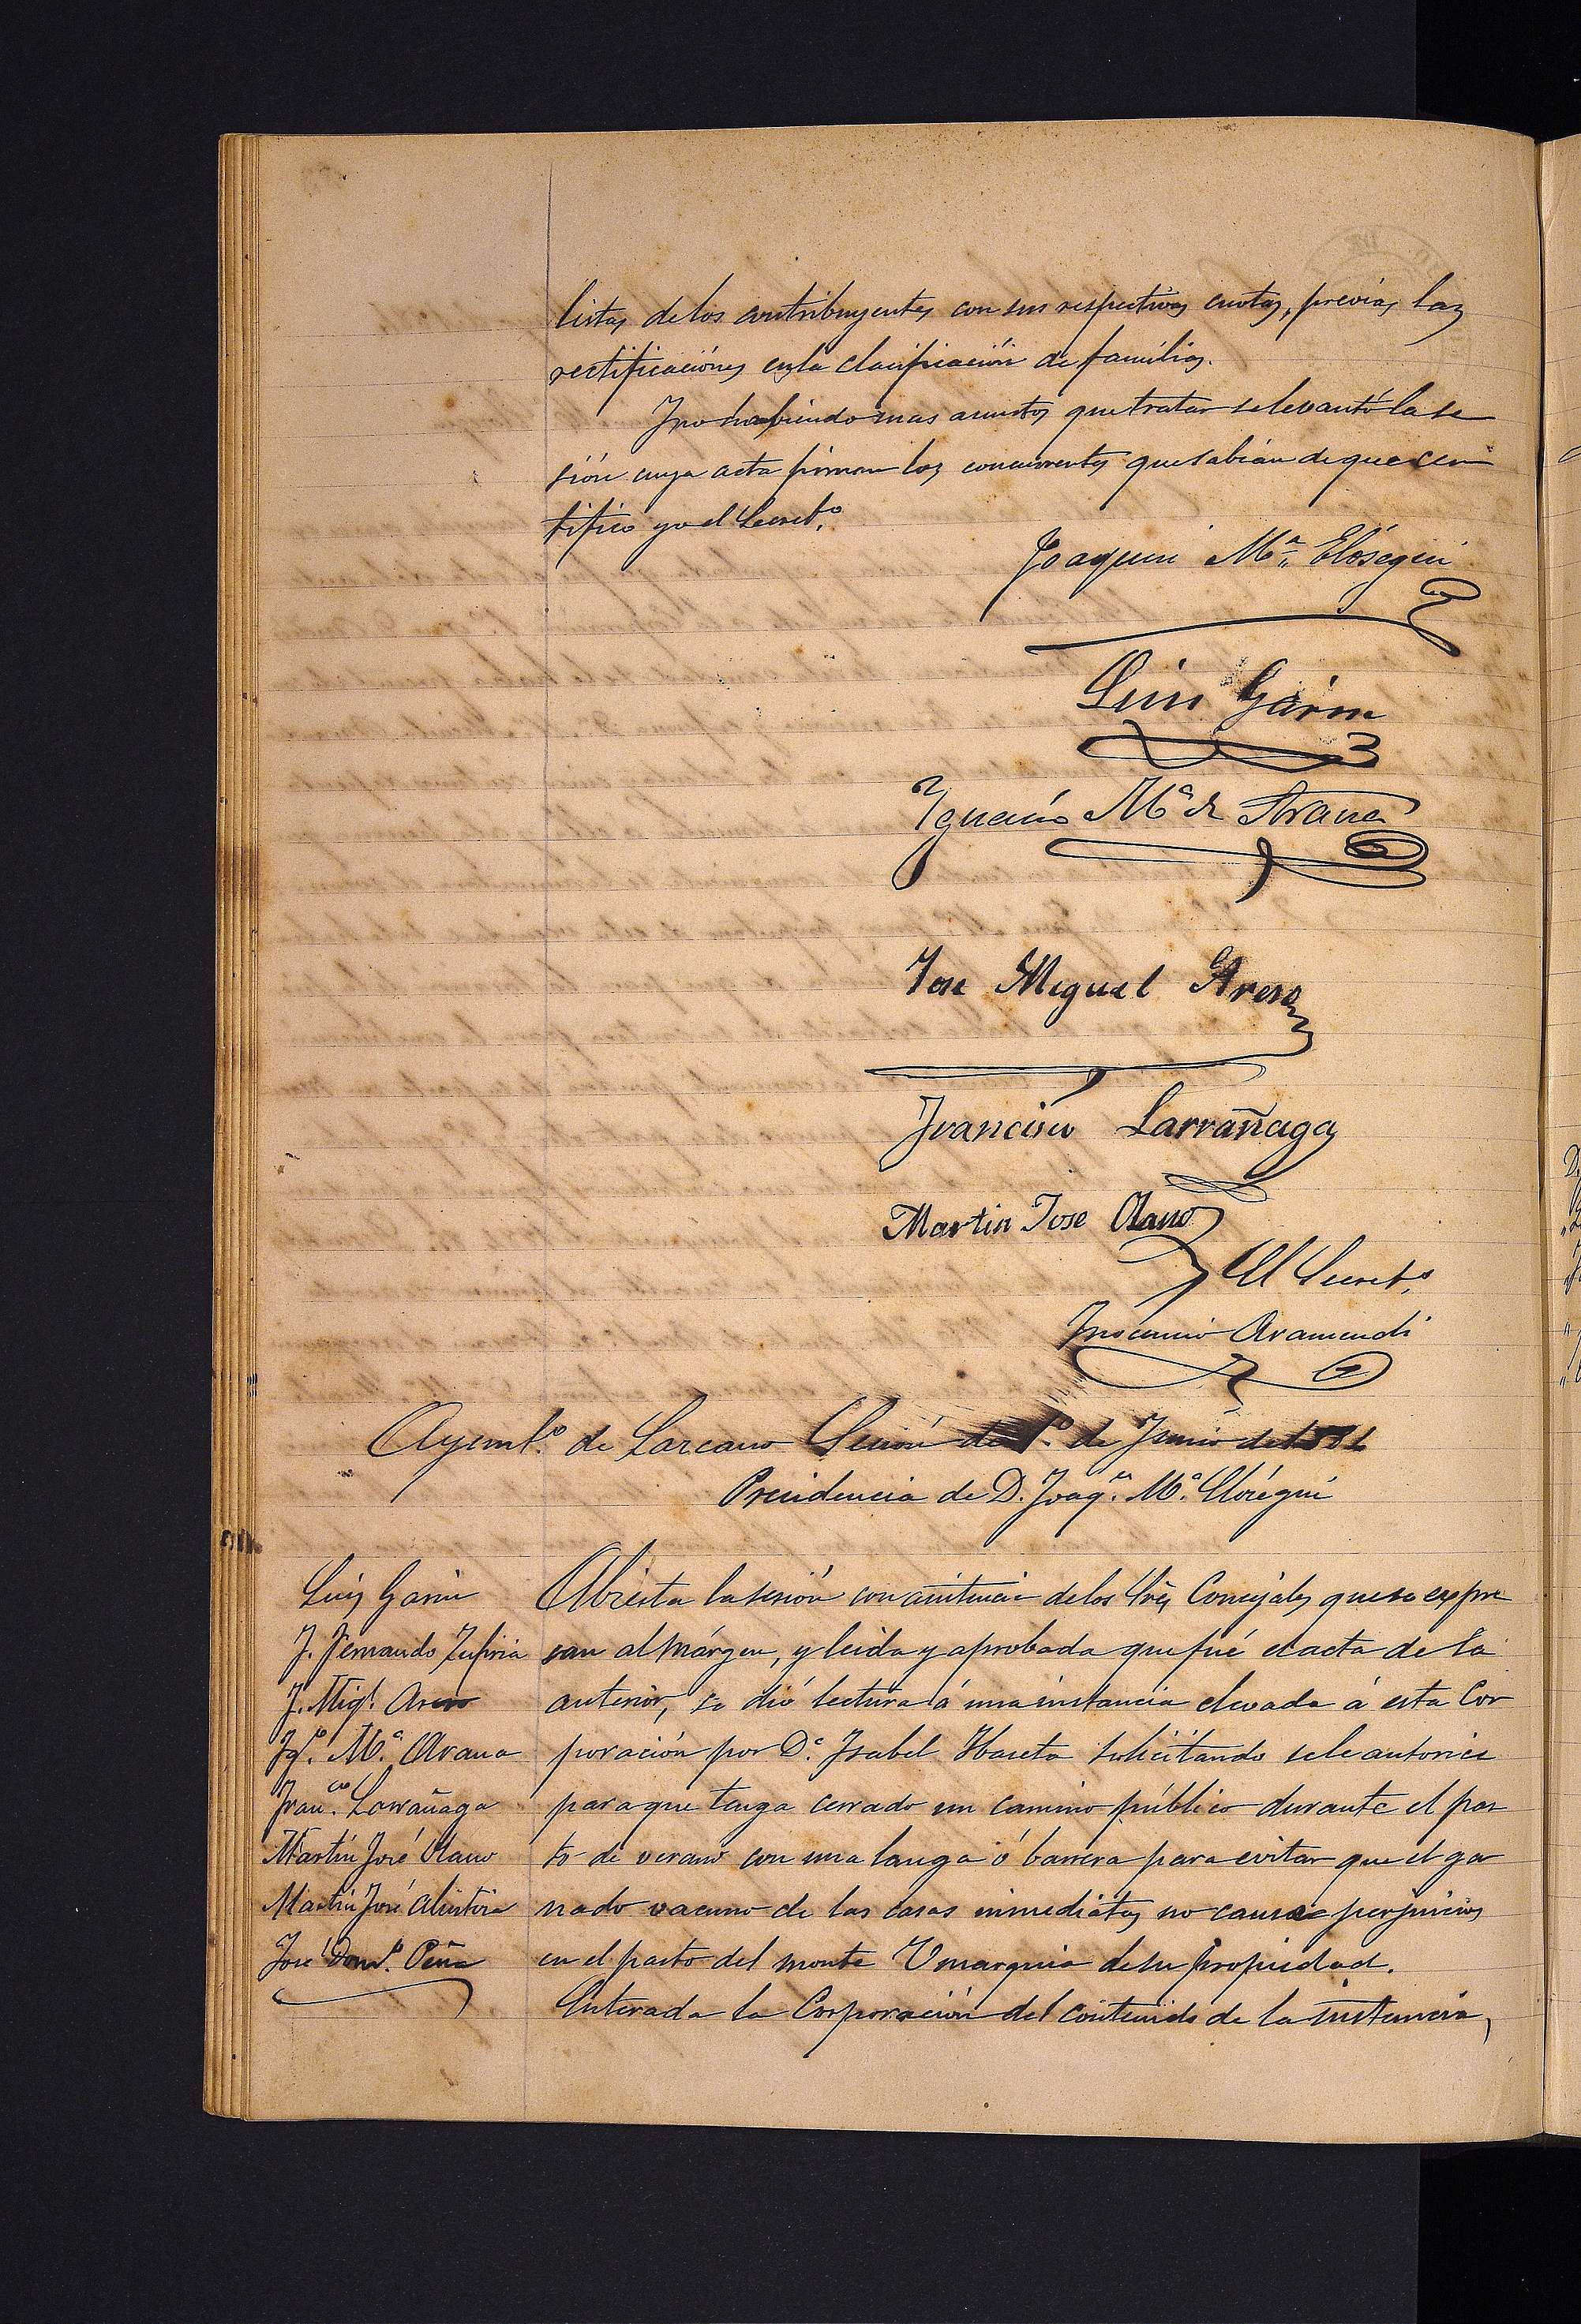 listas de los contribuyentes con sus respectivas cuotas, previas las
rectificaciónes en la clasificación de familias.
Y no habiendo mas asuntos que tratar se levantó la se
sión cuya acta firman los concurrentes que sabian de que cer
tifico yo el Secret.º
Joaquin M.ª Elósegui
Luis Garin
Ygnacio M.ª de Arana
Jose Miguel Areso
Francisco Larrañaga
Martin Jose Olano
El Secret.º
Inocencio Aramendi
Ayemt.º de Lazcano Sesión de 1.º de Junio de
Presidencia de D. Joaq.n M.ª Elósegui
Luis Garin
J. Fernando Zufiria
J. Mig.l Areso
Ig.º M.ª Arana
Fran.co Larrañaga
Martin José Olano
Martin José Aliustiza
José Dom.º Peña
Abierta la sesión con asistencia de los Sres Concejales que se expre
san al márgen, y leida y aprobada que fué el acta de la
anterior, se dió lectura á una instancia elevada á esta Cor
poración por D.ª Isabel solicitando se le autorice
para que tenga cerrado un camino público durante el pas
to de verano con una langa ó barrera para evitar que el ga
nado vacuno de las casas inmediatas no cause perjuicios
en el pasto del monte de su propiedad.
Enterada la Corporación del contenido de la instancia,